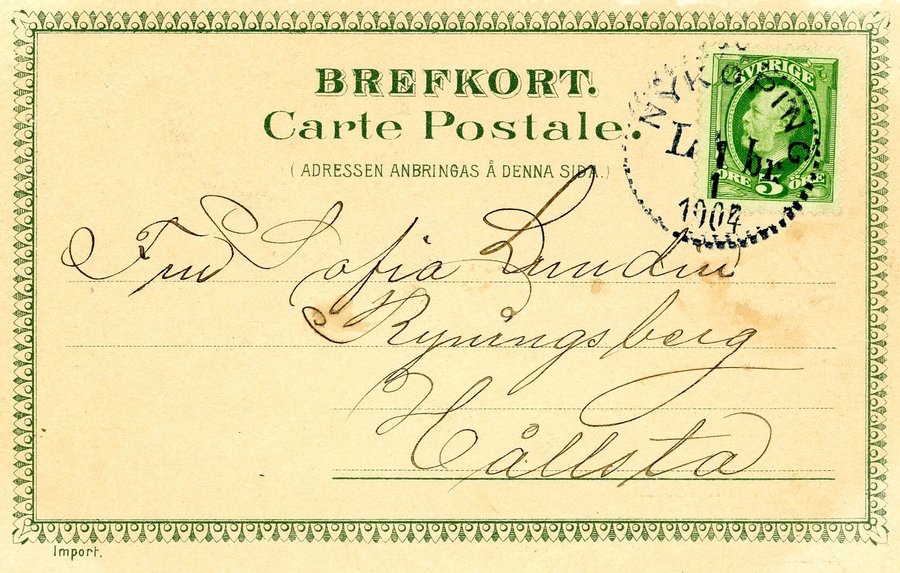 BREFKORT.
Carte Postale.
( ADRESSEN ANBRINGAS Å DENNA SIDA.)
SVERIGE
5
ÖRE ÖRE
NYKÖPING
1
1904
Fru Sofia Lundin
Ryningsberg
Hållsta
Import.